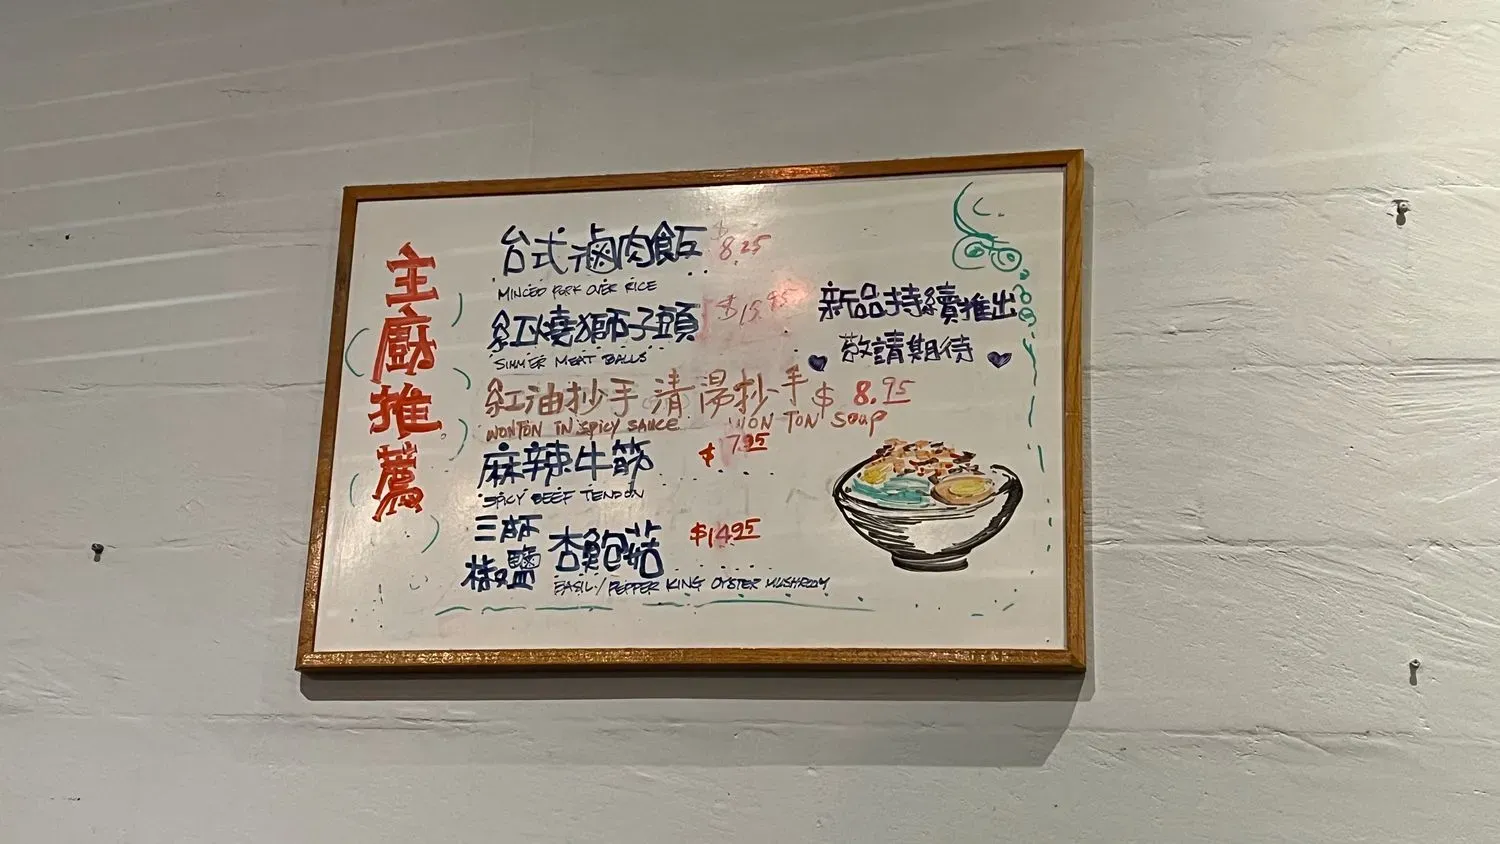 主廚推薦
台式滷肉飯 $8.25
MINCED PORK OVER RICE
紅燒獅子頭 $15.95
SIMMER MEAT BALLS
紅油抄手 清湯抄手 $8.95
WONTON IN SPICY SAUCE WON TON Soup
麻辣牛筋 $7.95
SPICY BEEF TENDON
三杯
椒鹽 杏鮑菇 $14.95
BASIL/PEPPER KING OYSTER MUSHROOM
新品持續推出
敬請期待